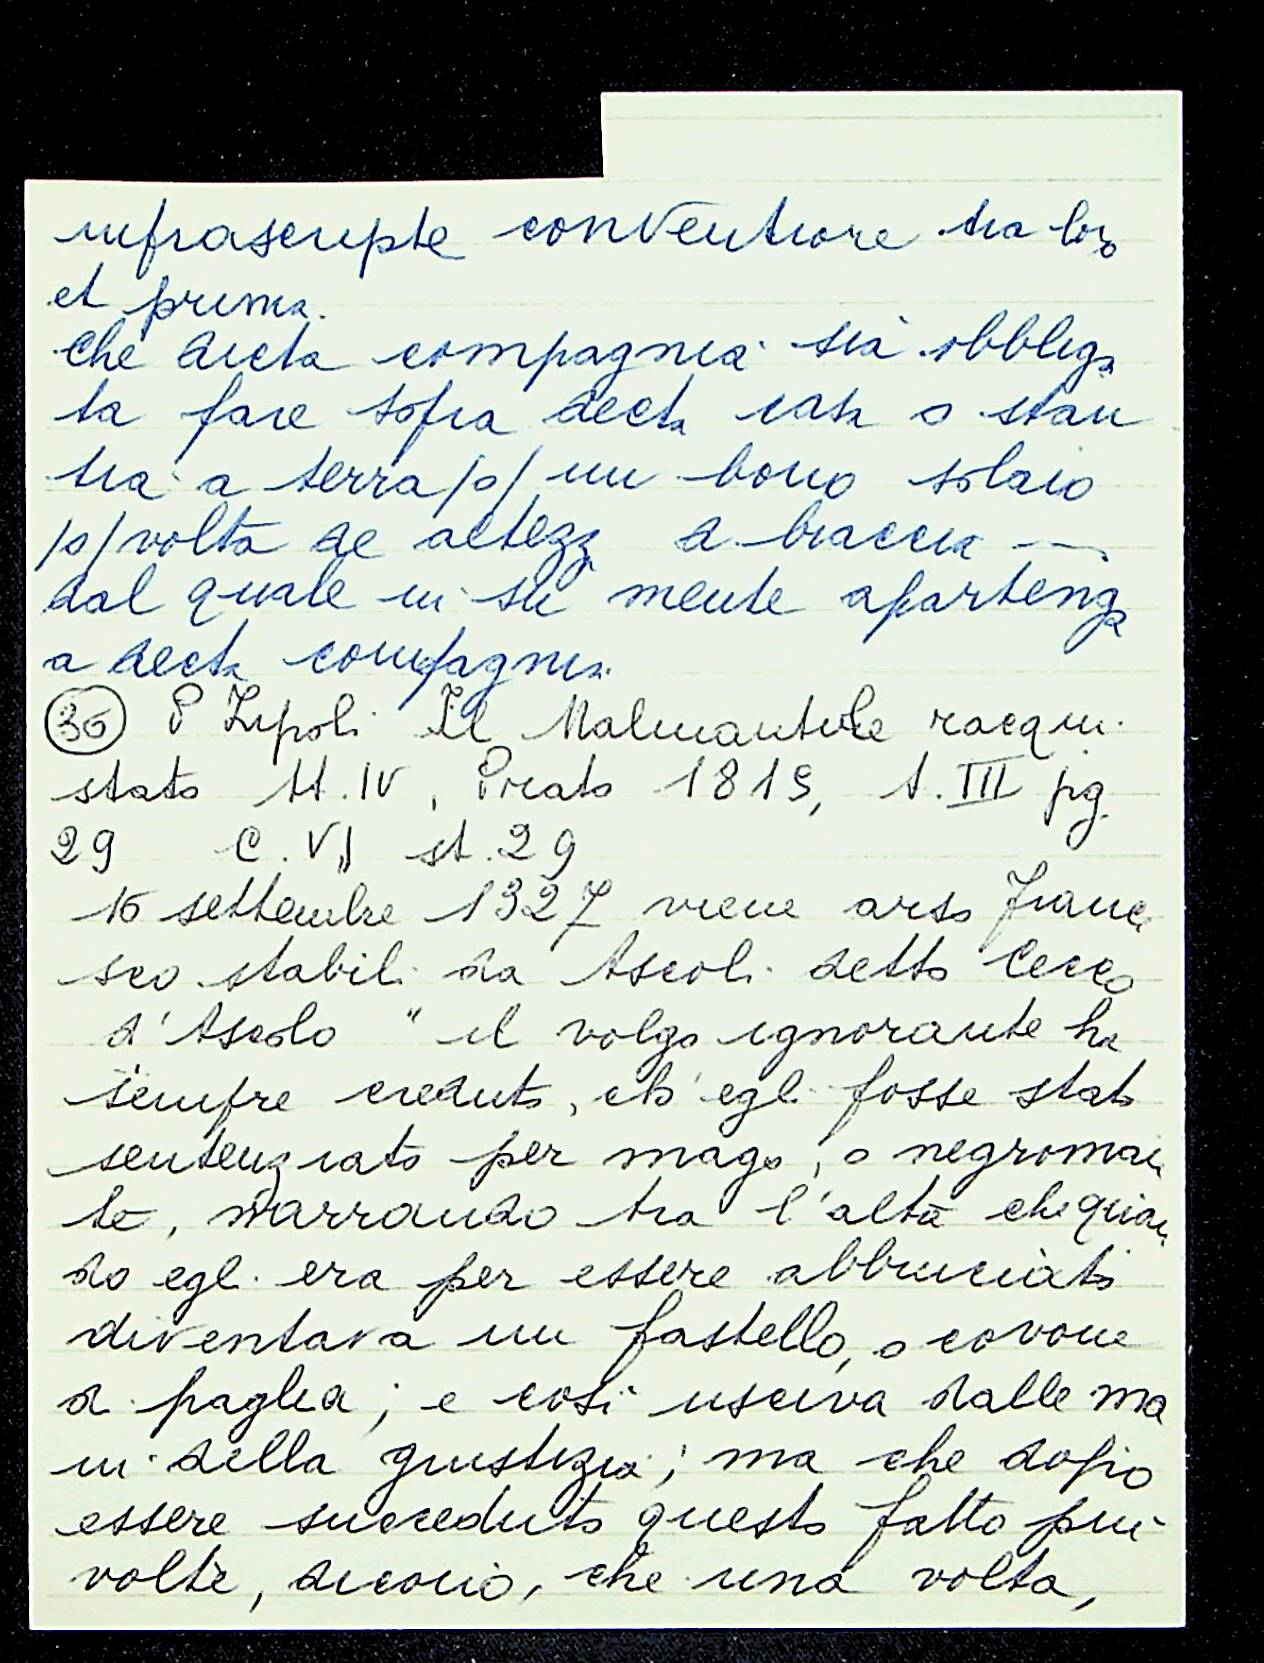 infrascripte conventione tra loro
et prima.
che decta compagnia sia obbliga
ta fare sopra decta casa o stan
tia a terra /o/ un bono solaio
/o/ volta de altezza di braccia —
dal quale in su mente apartenga
a decta compagnia.
(36) P Lipoli Il Malmantile racqui
stato H. IV, Prato 1815, t. III pig.
29 C. VI st. 29
16 settembre 1327 viene arso France
sco stabili da Ascoli detto Cecco
d'Ascolo " il volgo ignorante ha
sempre creduto, ch'egli fosse stato
sentenziato per mago, o negroman
te, narrando tra l'alta che quan
do egli era per essere abbruciato
diventava un fastello, o covone
di paglia; e così usciva dalle ma
ni della giustizia; ma che dopo
essere succeduto questo fatto più
volte, dicono, che una volta,